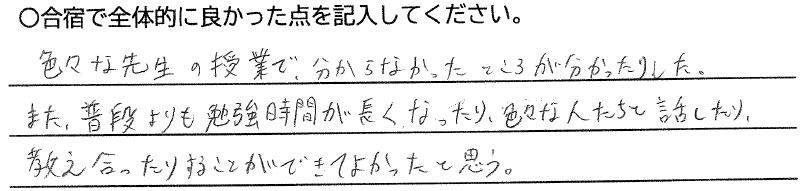 〇合宿で全体的に良かった点を記入してください。
色々な先生の授業で、分からなかったところが分かったりした。
また、普段よりも勉強時間が長くなったり、色々な人たちと話したり、
教え合ったりすることができてよかったと思う。